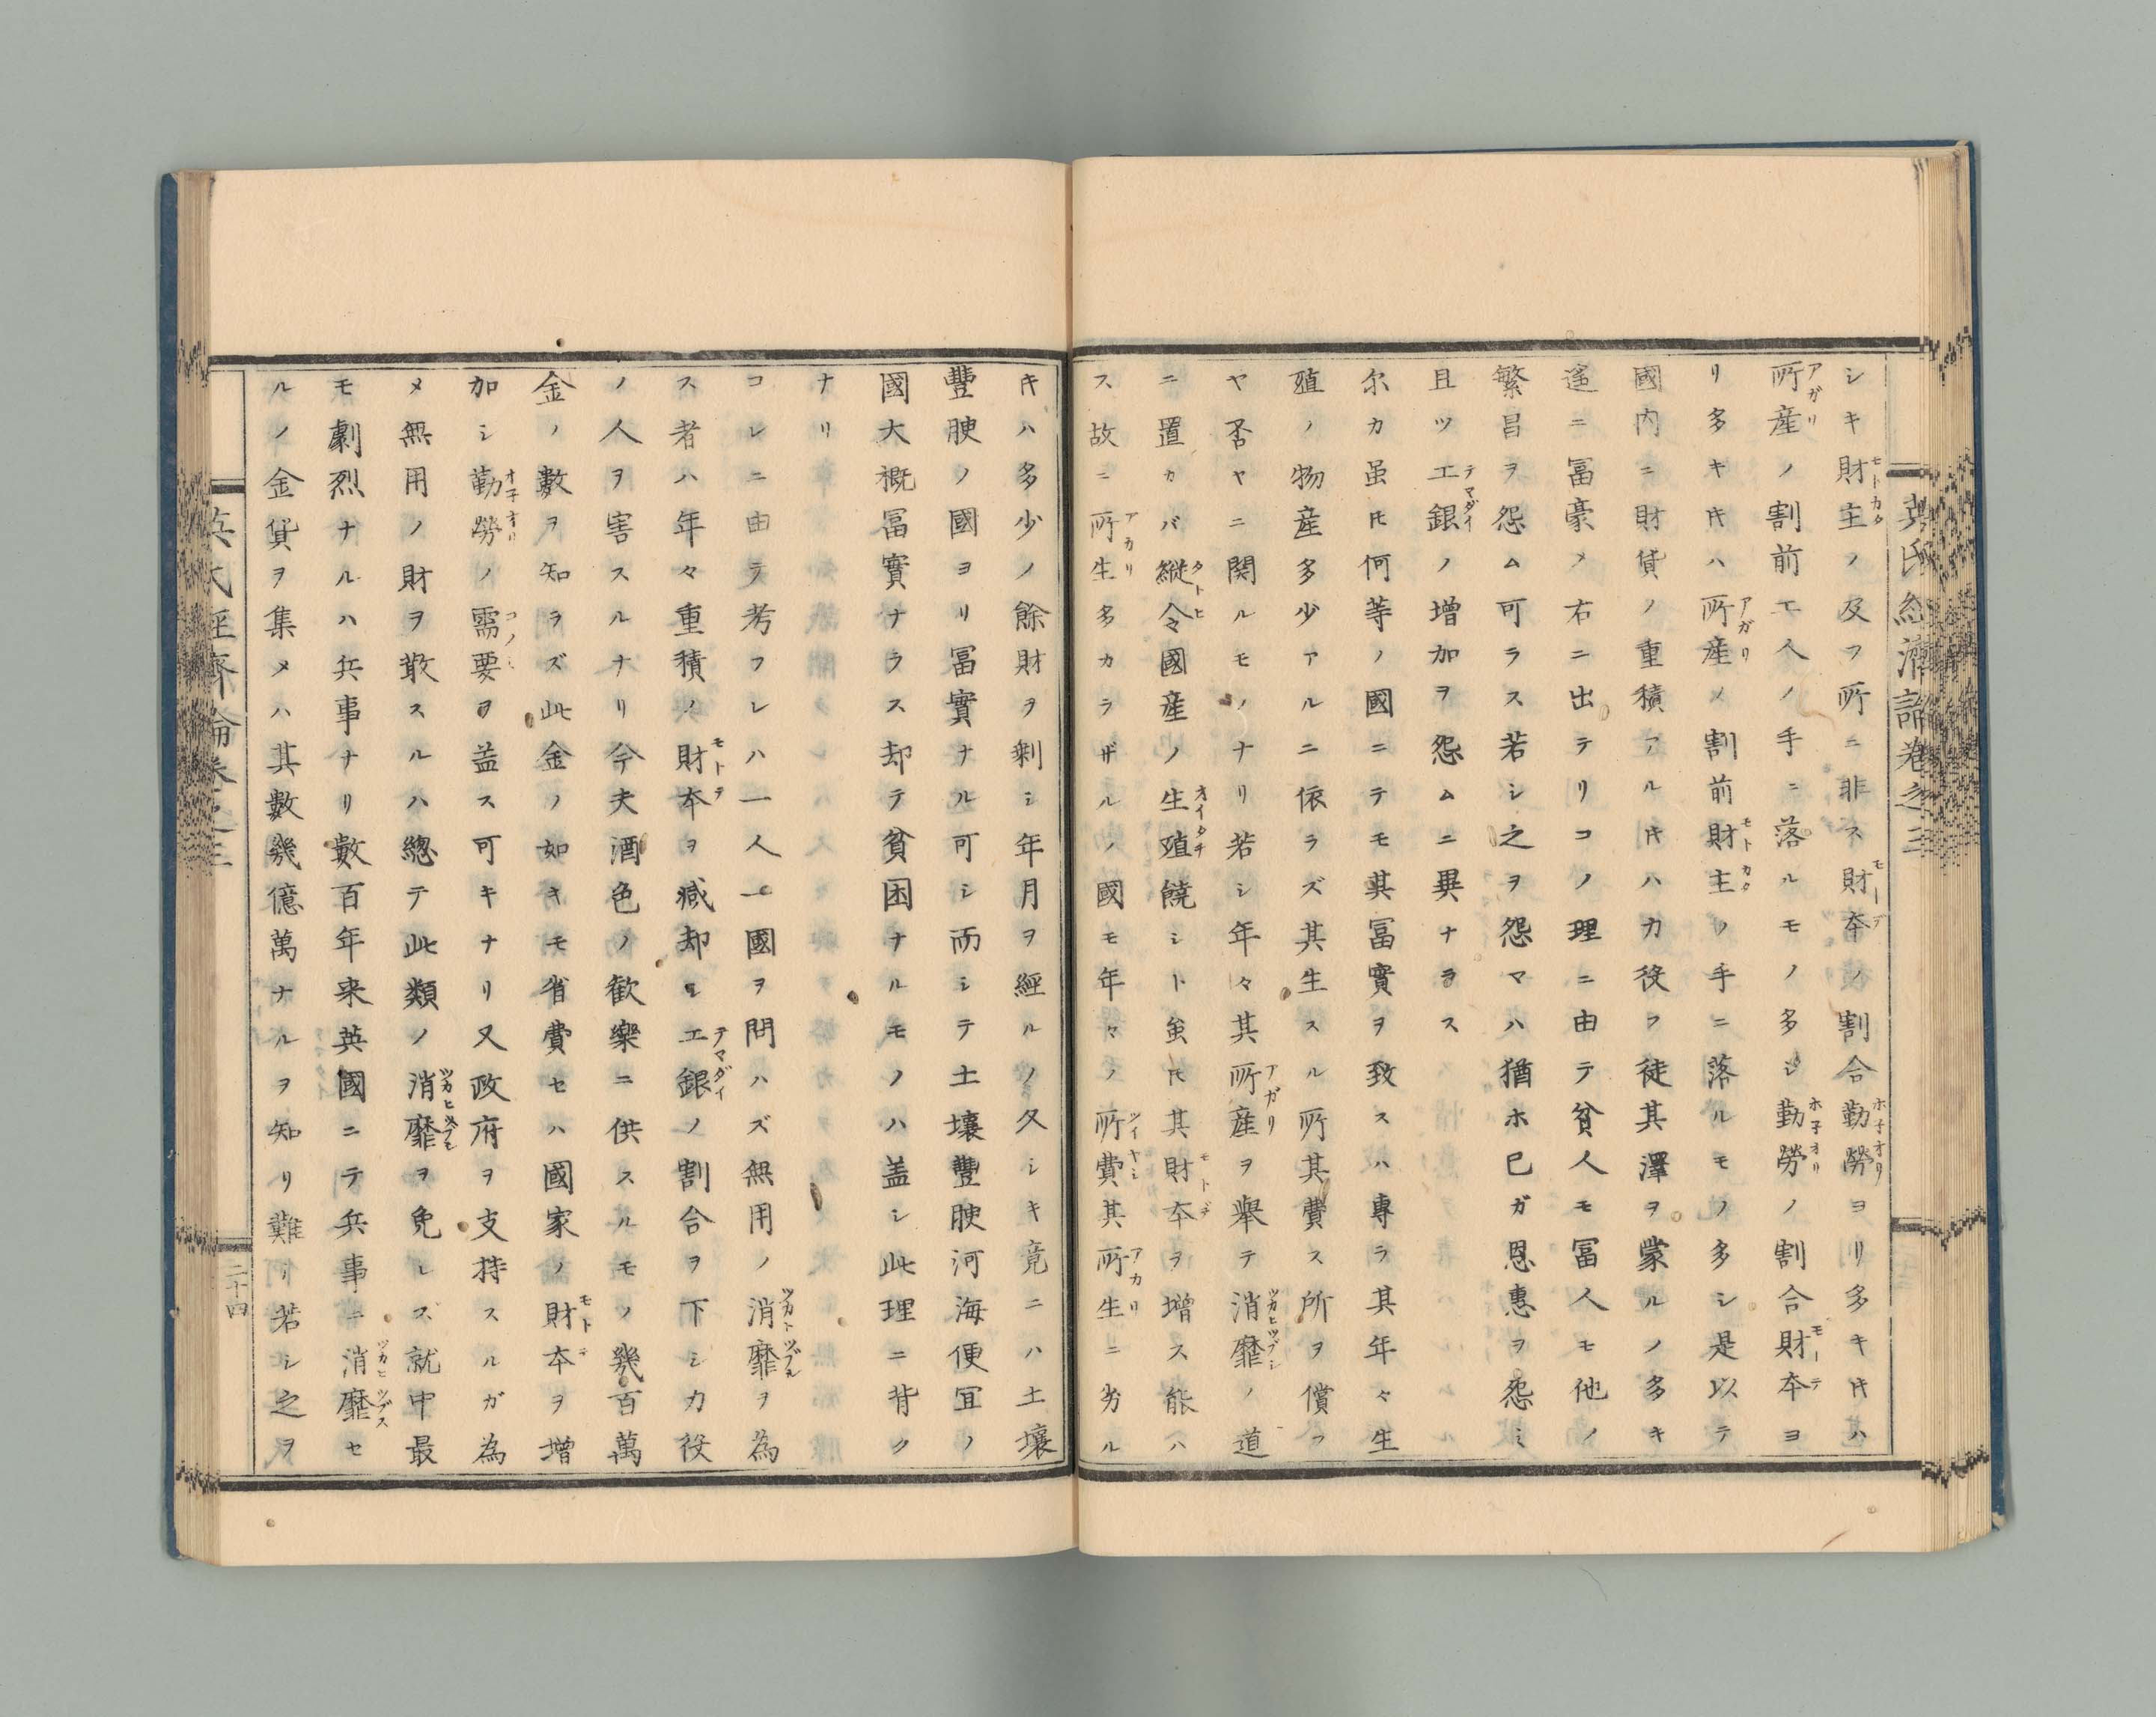 シキ財主ノ及フ所ニ非ス財本ノ割合勤勞ヨリ多キ𪜈ハ
所産ノ割前工人ノ手ニ落ルモノ多シ勤勞ノ割合財本ヨ
リ多キ𪜈ハ所産ノ割前財主ノ手ニ落ルモノ多シ是以テ
國内ニ財貨ノ重積アル𪜈ハ力役ノ徒其澤ヲ蒙ルノ多キ
遙ニ冨豪ノ右ニ出テリコノ理ニ由テ貧人モ冨人モ他ノ
繁昌ヲ怨ム可ラス若シ之ヲ怨マハ猶ホ已ガ恩惠ヲ怨ミ
且ツ工銀ノ増加ヲ怨ムニ異ナラス
尓カ虽𪜈何等ノ國ニテモ其冨實ヲ致スハ專ラ其年々生
殖ノ物産多少アルニ依ラズ其生スル所其費ス所ヲ償フ
ヤ否ヤニ関ルモノナリ若シ年々其所産ヲ舉テ消靡ノ道
ニ置カバ縱令國産ノ生殖饒シト虽𪜈其財本ヲ増ス能ハ
ス故ニ所生多カラザルノ國モ年々ノ所費其所生ニ劣ル
𪜈ハ多少ノ餘財ヲ剰シ年月ヲ經ルノ久シキ竟ニハ土壤
豐腴ノ國ヨリ冨實ナル可シ而シテ土壤豐腴河海便冝ノ
國大概冨實ナラス却テ貧困ナルモノハ盖シ此理ニ背ク
ナリ
コレニ由テ考フレハ一人一國ヲ問ハズ無用ノ消靡ヲ為
ス者ハ年々重積ノ財本ヲ減却シ工銀ノ割合ヲ下シ力役
ノ人ヲ害スルナリ今夫酒色ノ歓樂ニ供スルモノ幾百萬
金ノ數ヲ知ラズ此金ノ如キモ省費セハ國家ノ財本ヲ増
加シ勤勞ノ需要ヲ益ス可キナリ又政府ヲ支持スルガ為
メ無用ノ財ヲ散スルハ總テ此類ノ消靡ヲ免レズ就中最
モ劇烈ナルハ兵事ナリ數百年来英國ニテ兵事ニ消靡セ
ルノ金貨ヲ集メハ其數幾億萬ナルヲ知リ難シ若シ之ヲ
二十四